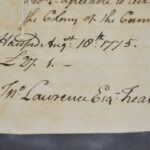 the Colony of the
Hartford Augt. 18th. 1775.
£ 27. 1. –
Jno. Lawrence Esq.